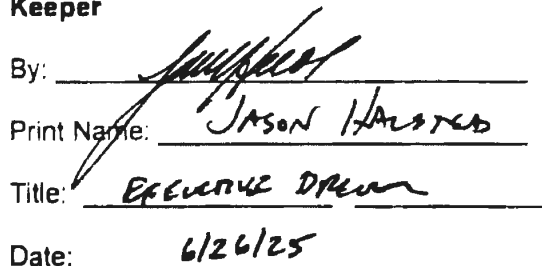 Keeper
By:
Print Name: JASON HALSTED
Title: EXECUTIVE
Date: 6/26/25